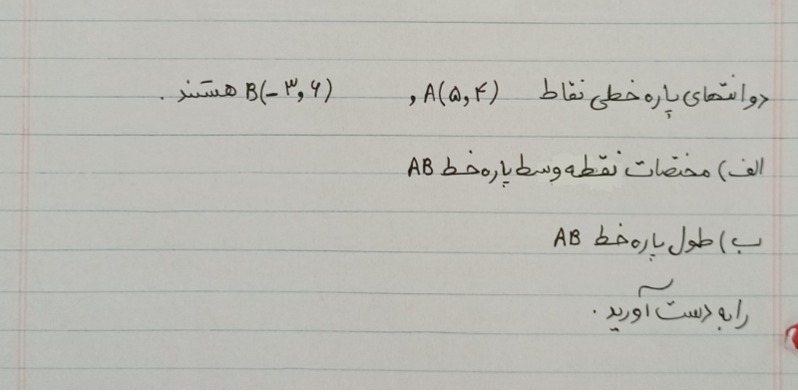 دو انتهای پاره خطی نقاط A(۵,۴) , B(-۳,۶) هستند .
الف) مختصات نقطه وسط پاره خط AB
ب) طول پاره خط AB
را به دست آورید .